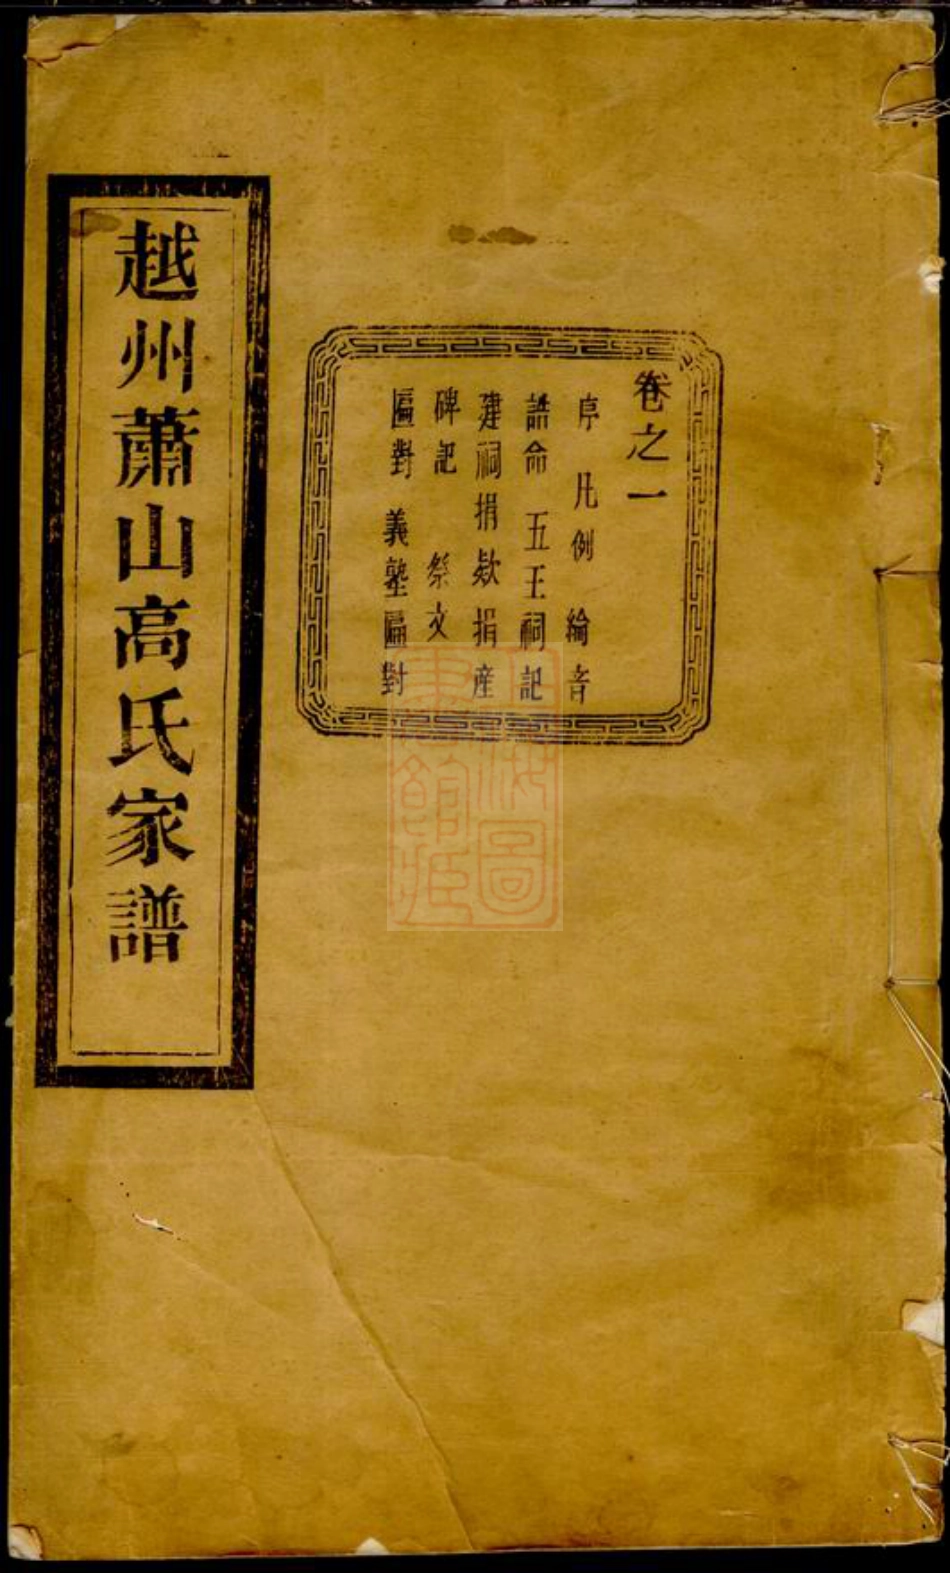 越州蕭山高氏家譜
卷之一
序 凡例 綸音
誥命 五王祠記
建祠捐欵捐產
碑記 祭文
匾對 義塾匾對
上海圖書館藏